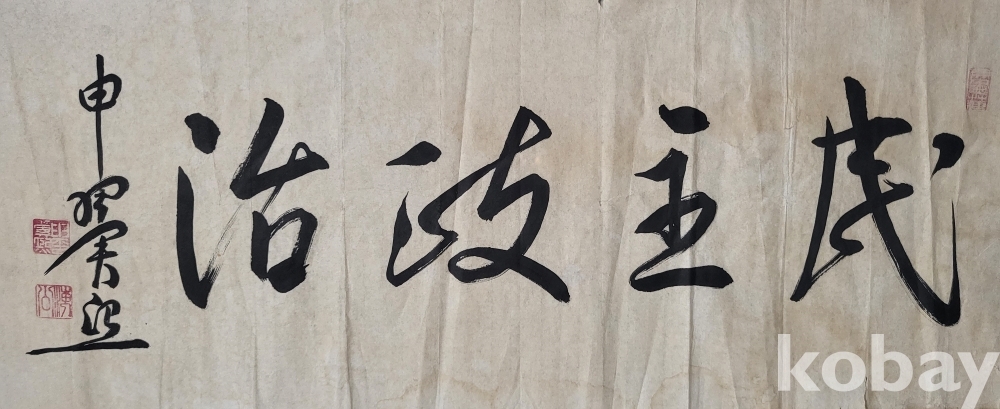 民主政治
申翼熙
海公
kobay